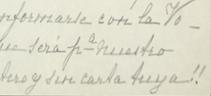 nformarse con la Vo-
ue será pª nuestro
tero y sin carta tuya!!